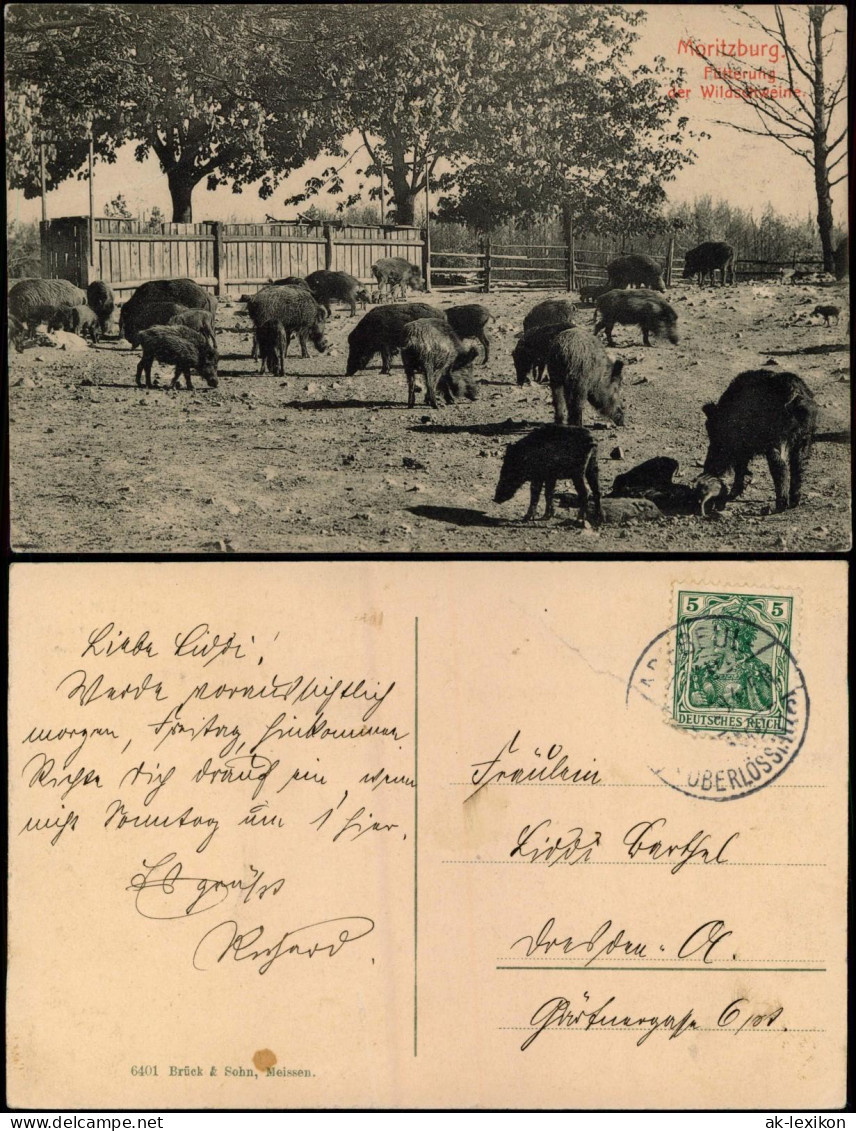 Moritzburg.
Fütterung
der Wildschweine.
Liebe Liddi!
Werde voraussichtlich
morgen, Freitag, hinkommen
Richte Dich drauf ein, wenn
nicht Sonntag um 1 hier.
Es grüßt
Richard.
6401 Brück & Sohn, Meissen.
5 5
DEUTSCHES REICH
OBERLÖSSNITZ
Fräulein
Liddi Barthel
Dresden-A.
Gärtnergasse 6
ak-lexikon.com